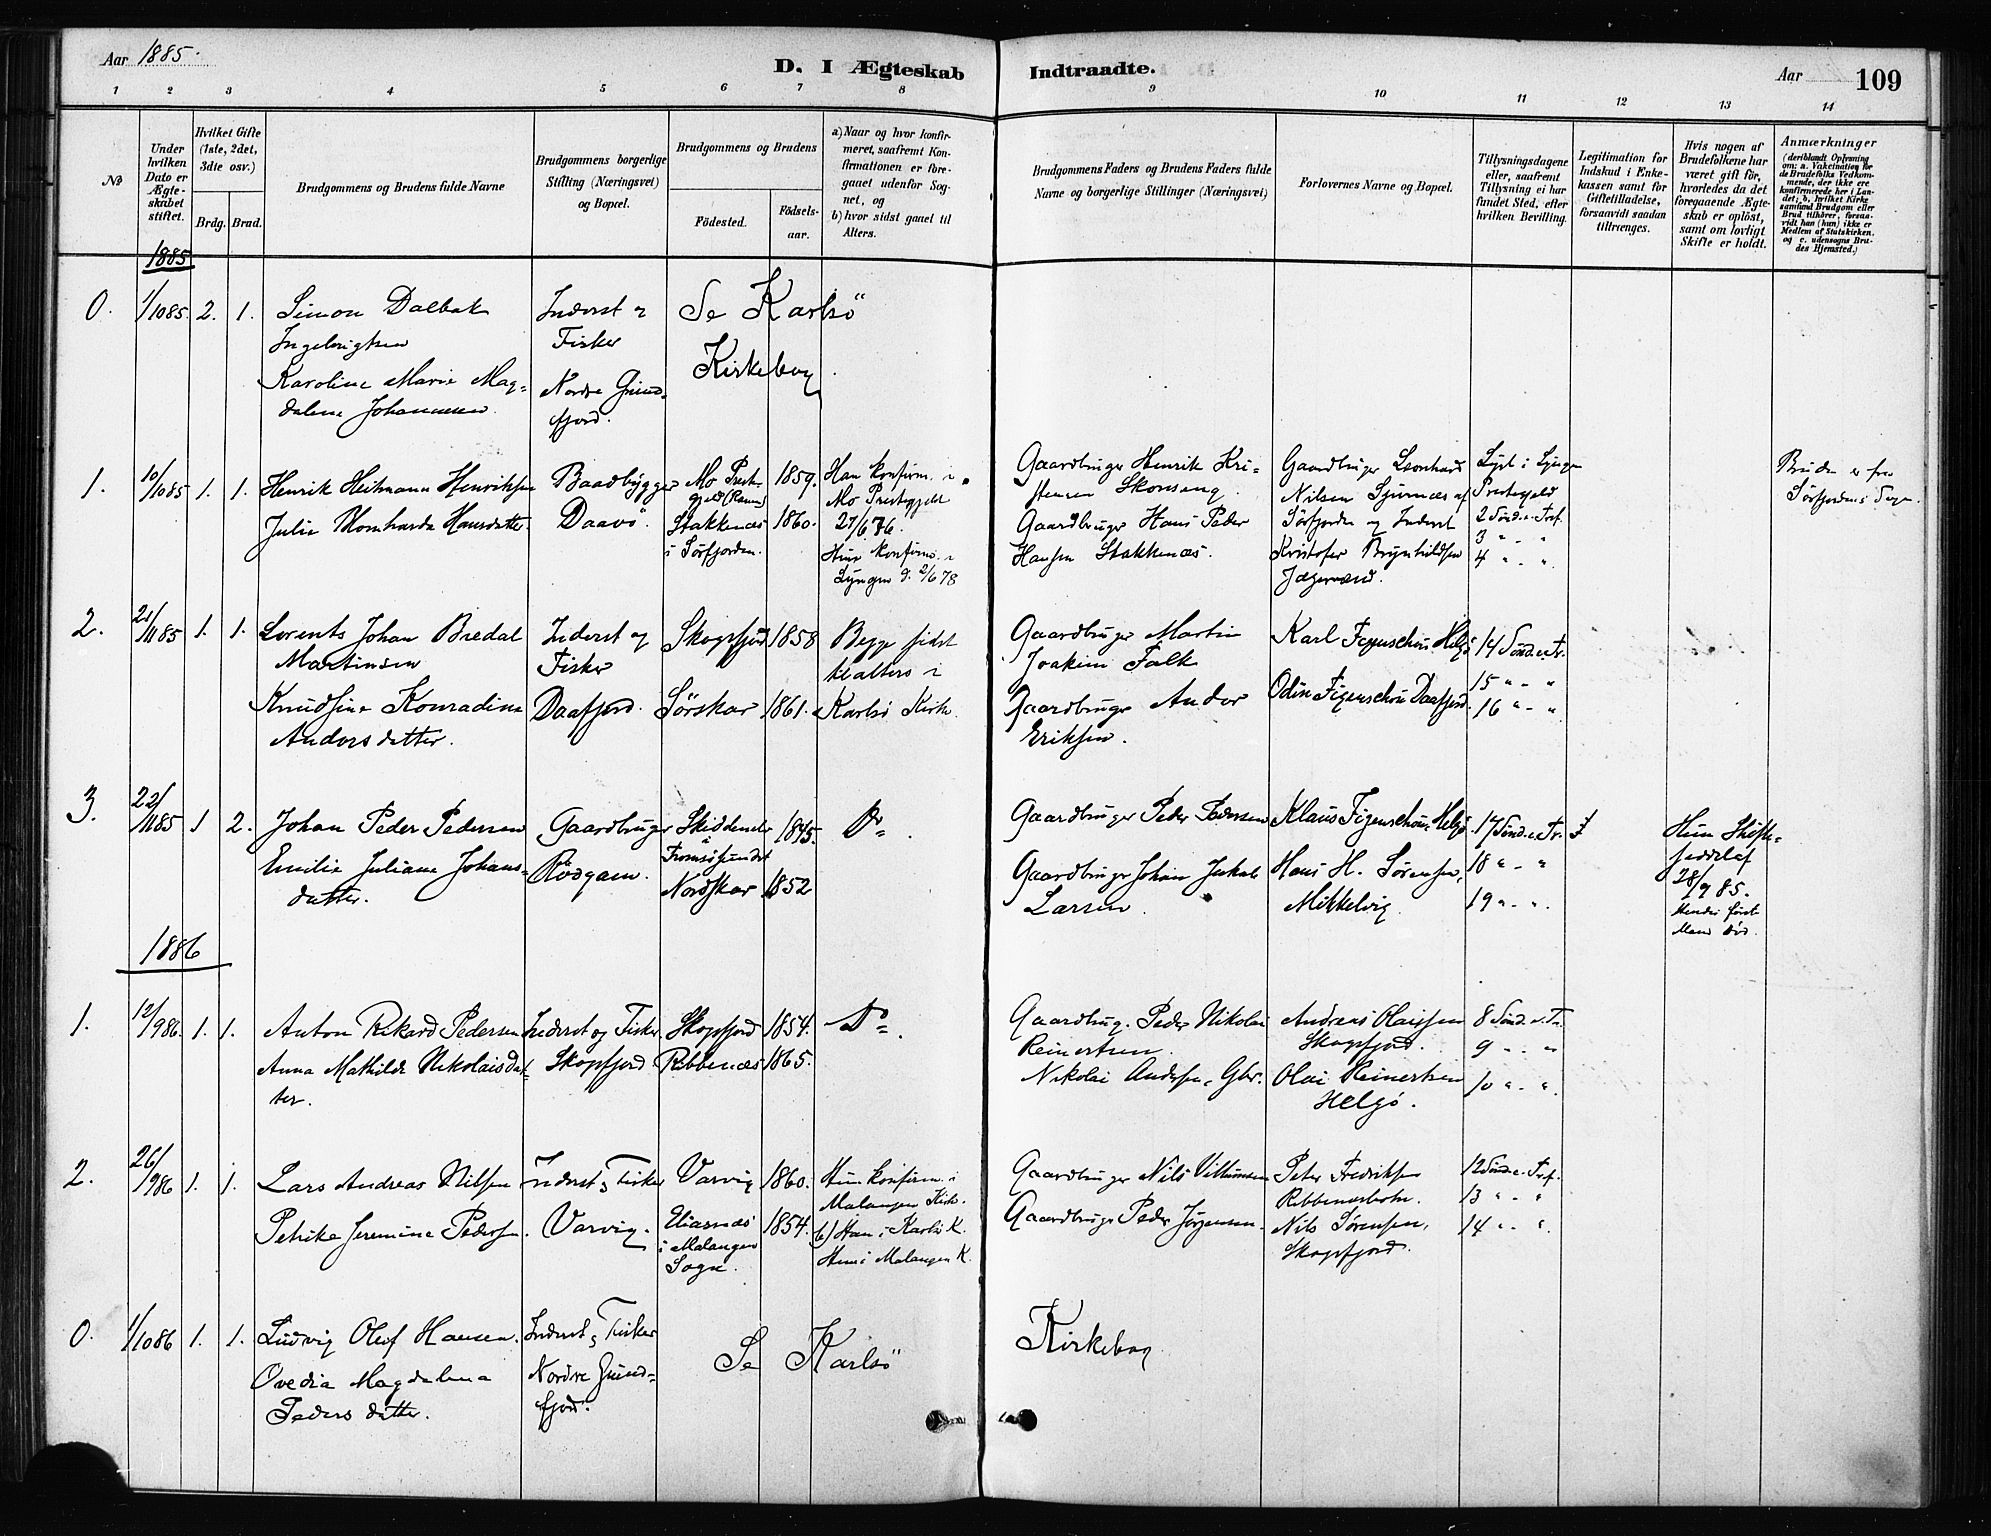 Aar 1885.
D. I Ægteskab Indtraadte.
Aar 109
1 2 3 4 5 6 7 8 9 10 11 12 13 14
№
Under hvilken Dato er Ægteskabet stiftet.
Hvilket Gifte (1ste, 2det, 3die osv.)
Brdg. Brud.
Brudgommens og Brudens fulde Navne
Brudgommens borgerlige Stilling (Næringsvei) og Bopæl.
Brudgommens og Brudens
Födested.
Födsels-aar.
a) Naar og hvor konfirmeret, saafremt Konfirmationen er foregaaet udenfor Sognet, og
b) hvor sidst gaaet til Alters.
Brudgommens Faders og Brudens Faders fulde Navne og borgerlige Stillinger (Næringsvei)
Forlovernes Navne og Bopæl.
Tillysningsdagene eller, saafremt Tillysning ei har fundet Sted, efter hvilken Bevilling.
Legitimation for Indskud i Enkekassen samt for Giftetilladelse, forsaavidt saadan tiltrænges.
Hvis nogen af Brudefolkene har været gift för, hvorledes da det foregaaende Ægteskab er oplöst, samt om lovligt Skifte er holdt.
Anmærkninger
(deriblandt Oplysning om: a. Vakcination for de Brudefolks Vedkommende, der ikke ere konfirmerede her i Landet; b. hvilket Kirkesamfund Brudgom eller Brud tilhörer, forsaavidt han (hun) ikke er Medlem af Statskirken, og c. udensogns Brudes Hjemsted.)
1885
0. 1/10 85. 2. 1. Simon Dalbak Inderst og Se Karlsö
Ingebrigtsen Fisker Kirkebog
Karoline Marie Mag- Nordre Grund-
dalene Johannesen. fjord.
1. 10/10 85 1. 1. Henrik Heitmann Henriksen Baadbygger Mo Prest- 1859. Han konfirm. i
gjeld (Ranen) Mo Prestegjeld
Julie Hansdatter Daavö. Stakkenæs 1860. 27/6 76.
i Sörfjorden. Hun konfirm. i
Lyngen d. 2/6 78
Gaardbruger Henrik Kri- Gaardbruger Leonhard Lyst i Lyngen
stensen Skonseng. Nilsen af Prestegjeld
Gaardbruger Hans Peder Sörfjorden og Inderst 2 Sönd. e. Tref.
Hansen Stakkenæs. Kristofer Brynhildsen 3 " - "
Jægervand. 4 " - "
Bruden er fra
Sörfjordens Sogn.
2. 21/11 85 1. 1. Lorents Johan Bredal Inderst og Skogsfjord 1858 Begge sidst
Martinsen Fisker til alters i
Knudsine Konradine Daafjord. Sörskar 1861. Karlsö Kirke.
Andorsdatter.
Gaardbruger Martin Karl Figenschou Helgö 14 Sönd. e. Tr.
Joakim Falk 15 " - "
Gaardbruger Andor Odin Figenschou Daafjord. 16 " - "
Eriksen.
3. 22/11 85 1 2. Johan Peder Pedersen Gaardbruger 1845. Do
Tromsösundet
Emilie Juliane Johans- Rödgam. Nordskar 1852
datter.
Gaardbruger Peder Pedersen Klaus Figenschou, Helgö. 17 Sönd. e. Tr.
Gaardbruger Johan Jakob Hans H. Sörensen, 18 " - "
Larsen. Mikkelvig. 19 " - "
Hun Skifte-
28/9 85.
Hendes förste
Mand död.
1886
1. 12/9 86. 1. 1. Anton Rikard Pedersen Inderst og Fisker. Skogsfjord 1854. Do
Anna Mathilde Nikolaisdat- Skogsfjord Ribbenæs 1865.
ter.
Gaardbrug. Peder Nikolai Andreas Olaissen 8 Sönd. e. Tr.
Reinertsen. Skogsfjord. 9 " - "
Nikolai Andersen, Gbr. Olai Reinertsen 10 " - "
Helgö.
2. 26/9 86 1. 1. Lars Andreas Nilsen Inderst og Fisker Varvig 1860. Hun konfirm. i
Malangen Kirke.
Petrike Jeremine Pedersen. Varvig. Eliasnæs 1854. b) Han i Karlsö K.
i Malangen Hun i Malangen K.
Sogn.
Gaardbruger Nils Villumsen Peter Fredriksen 12 Sönd. e. Tref.
Ribbenesbotn. 13 " - "
Gaardbruger Peder Jörgensen. Nils Sörensen, 14 " - "
Skogsfjord.
0. 1/10 86 1. 1. Ludvig Oluf Hansen. Inderst og Fisker Se Karlsö Kirkebog
Ovedia Magdalena Nordre Grund-
Pedersdatter. fjord.